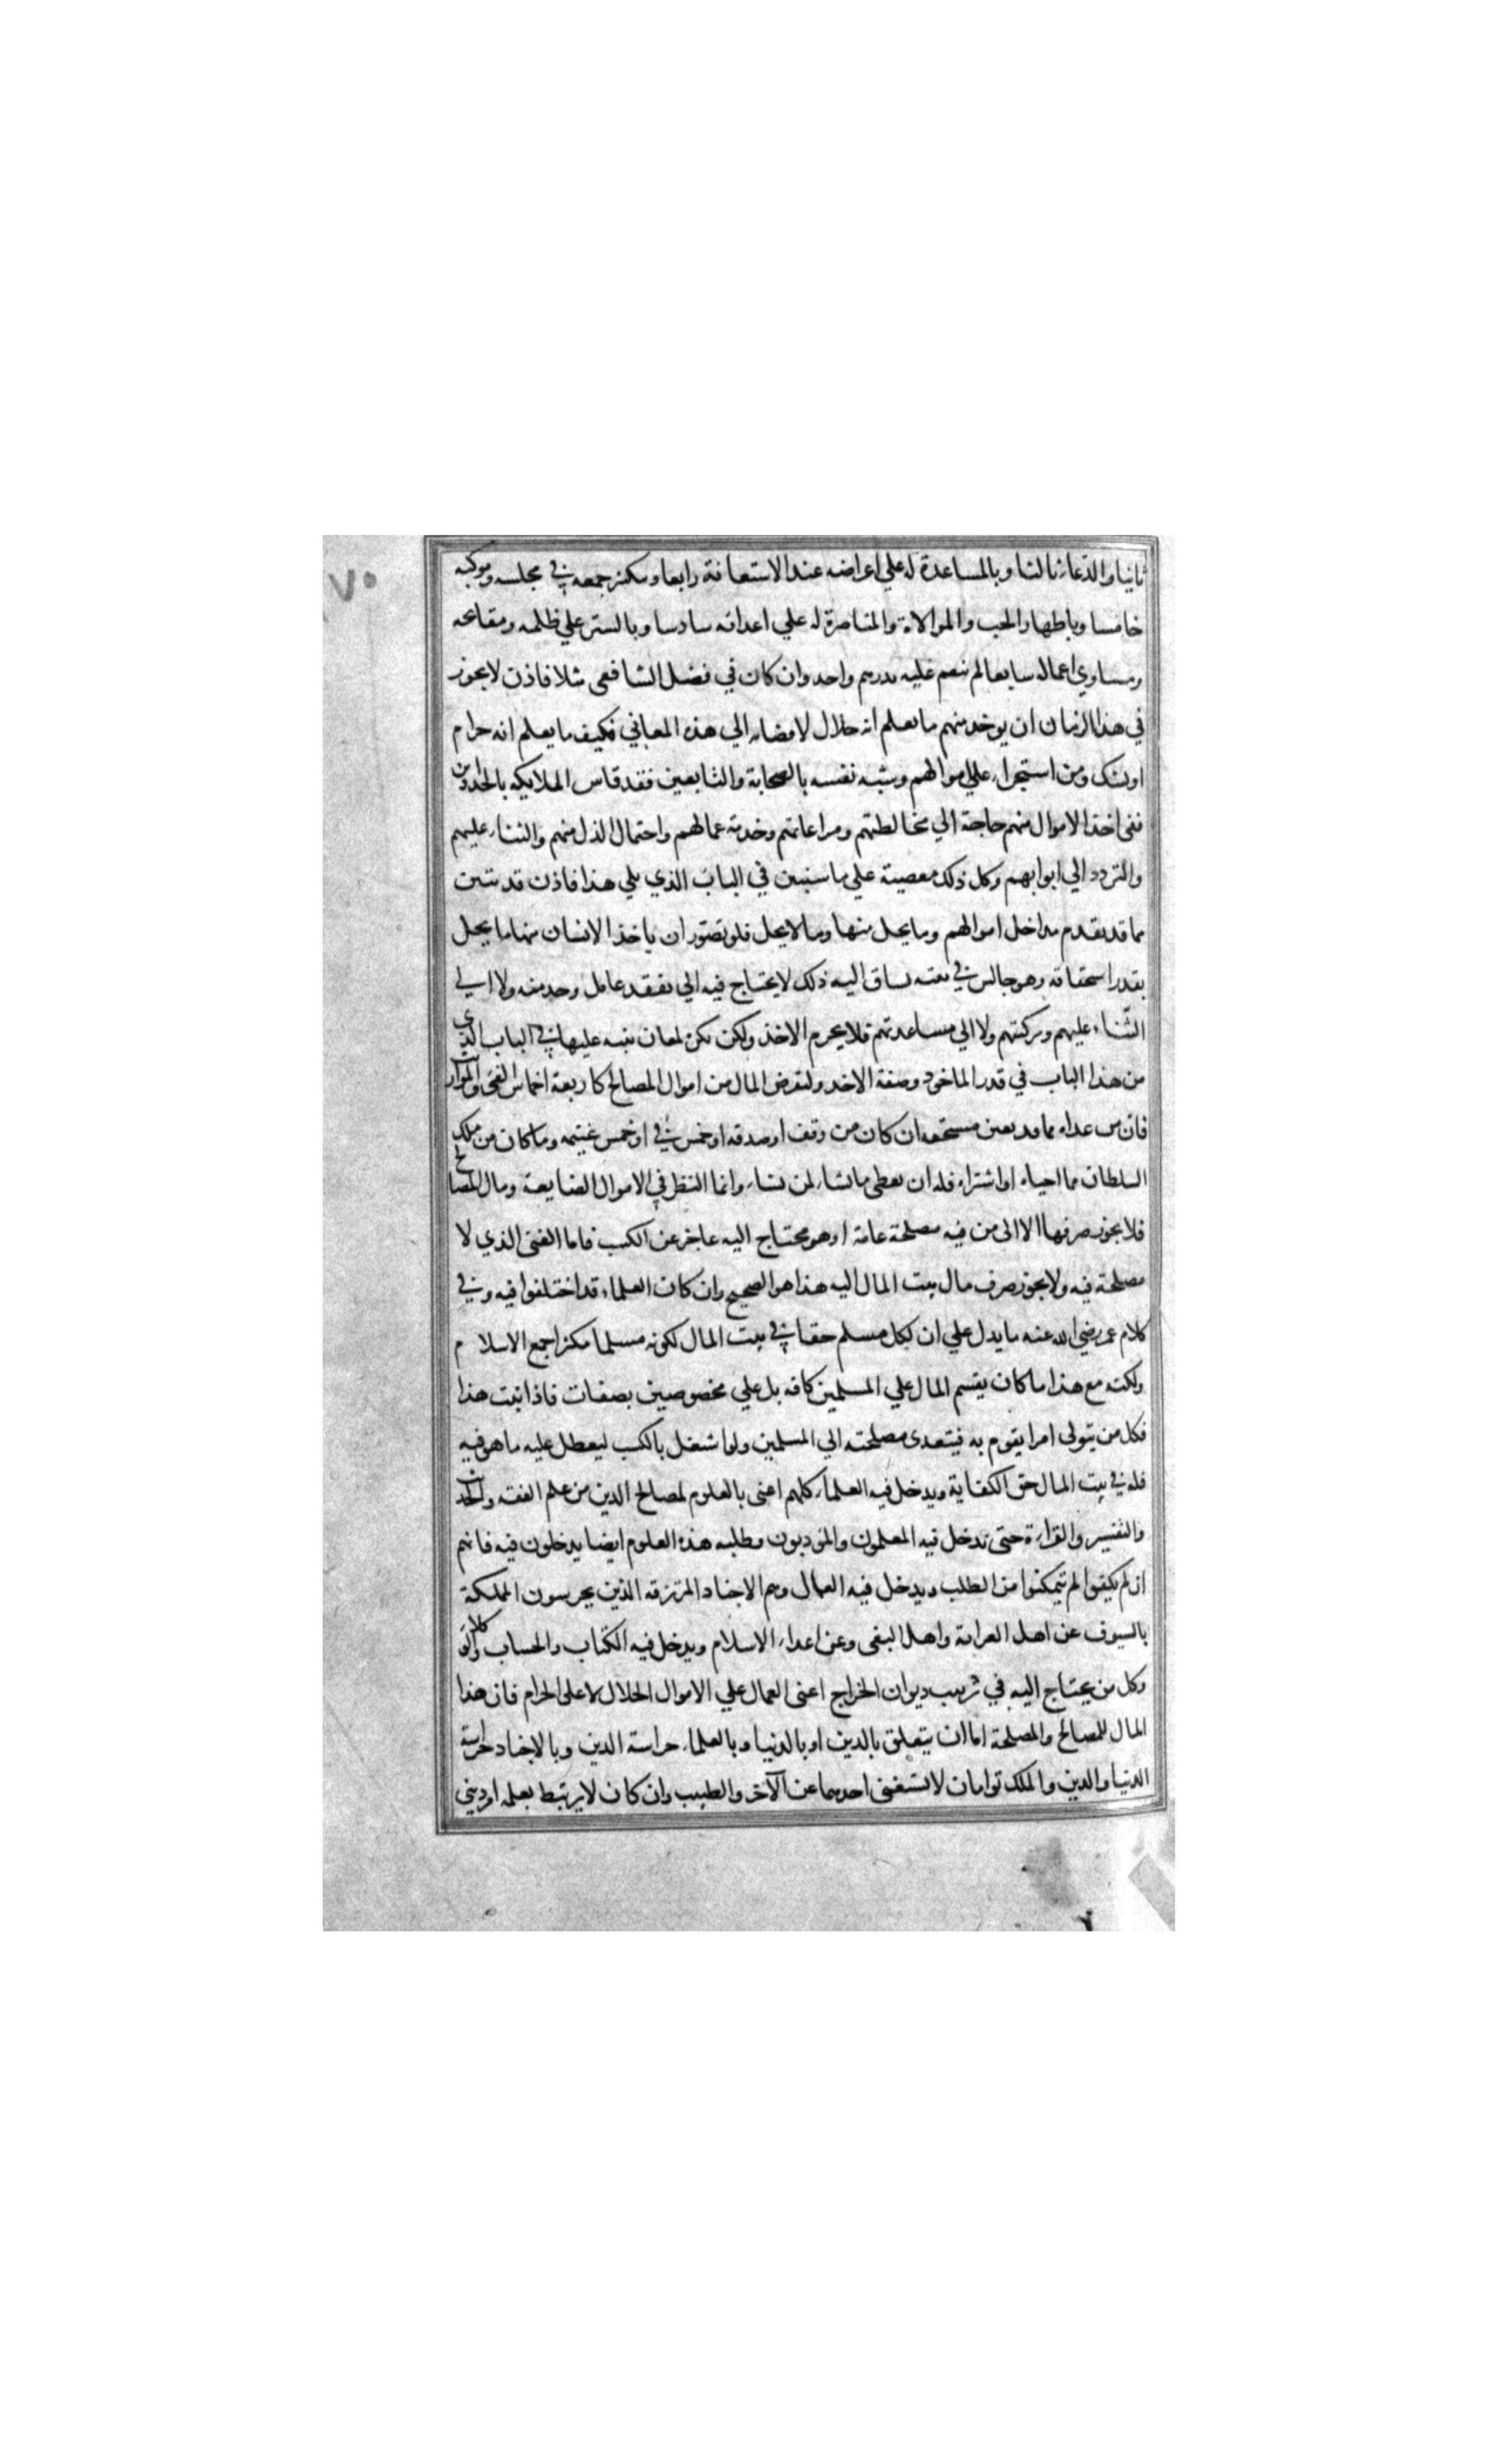 ٧٠
ثانيا والدعاء ثالثا وبالمساعدة له علي اعراضه عند الاستعانة رابعا وبتكثير جمعه في مجلسه وموكبه
خامسا وباظهار الحب والموالاة والمناصرة له علي اعدائه سادسا وبالستر علي ظلمه ومقابحه
ومساوي اعماله سابعا لم ينعم عليه بدرهم واحد وان كان في فضل الشافعي مثلا فاذن لا يجوز
في هذا الزمان ان يوخذ منهم ما يعلم انه حلال لافضائه الي هذه المعاني فكيف ما يعلم انه حرام
او يشك ومن استجراء علي اموالهم وشبه نفسه بالصحابة والتابعين فقد قاس الملايكه بالحدادين
ففي اخذ الاموال منهم حاجة الي مخالطتهم ومراعاتهم وخدمة عمالهم واحتمال الذل منهم والثناء عليهم
والتردد الي ابوابهم وكل ذلك معصية علي ما سنبين في الباب الذي يلي هذا فاذن قد تبين
مما قد يقدم مداخل اموالهم وما يحل منها وما لا يحل فلو تصور ان ياخذ الانسان منها ما يحل
بقدر استحقاقه وهو جالس في بيته يساق اليه ذلك لا يحتاج فيه الي تفقد عامل وخدمته ولا الي
الثناء عليهم وتزكيتهم ولا الي مساعدتهم فلا يحرم الاخذ ولكن يكره لمعان ننبه عليها في الباب الذي
من هذا الباب في قدر الماخوذ وصفة الاخذ ولنفرض المال من اموال المصالح كاربعة اخماس الفئ والمواريث
فان من عداه مما قد تعين مستحقه ان كان من وقف او صدقه او خمس في او خمس غنيمه وما كان من ملك
السلطان مما احياه او اشتراه فله ان يعطي ما يشاء لمن يشاء وانما النظر في الاموال الضايعة ومال المصالح
فلا يجوز صرفها الا الي من فيه مصلحة عامة او هو محتاج اليه عاجز عن الكسب فاما الغني الذي لا
مصلحة فيه ولا يجوز صرف مال بيت المال اليه هذا هو الصحيح وان كان العلماء قد اختلفوا فيه وفي
كلام عمر رضي الله عنه ما يدل علي ان لكل مسلم حقا في بيت المال لكونه مسلما مكثرا جمع الاسلام
ولكنه مع هذا ما كان يقسم المال علي المسلمين كافه بل علي مخصوصين بصفات فاذا ثبت هذا
فكل من يتولى امرا يقوم به فيتعدى مصلحته الي المسلمين ولو اشتغل بالكسب ليعطل عليه ما هو فيه
فله في بيت المال حق الكفاية ويدخل فيه العلماء كلهم اعني بالعلوم لمصالح الدين من علم الفقه والحديث
والتفسير والقراءة حتى تدخل فيه المعلمون والمؤدبون وطلبه هذه العلوم ايضا يدخلون فيه فانهم
ان لم يكفوا لم يتمكنوا من الطلب ويدخل فيه العمال وهم الاجناد المرتزقه الذين يحرسون المملكة
بالسيوف عن اهل العرامة واهل البغي وعن اعداء الاسلام ويدخل فيه الكتاب والحساب والوكلاء
وكل من يحتاج اليه في ترتيب ديوان الخراج اعني العمال علي الاموال الحلال لا على الحرام فان هذا
المال للمصالح والمصلحة اما ان يتعلق بالدين او بالدنيا وبالعلماء حراسة الدين وبالاجناد حراسة
الدنيا والدين والملك توامان لا يستغني احدهما عن الآخر والطبيب وان كان لا يرتبط بعلمه امر ديني